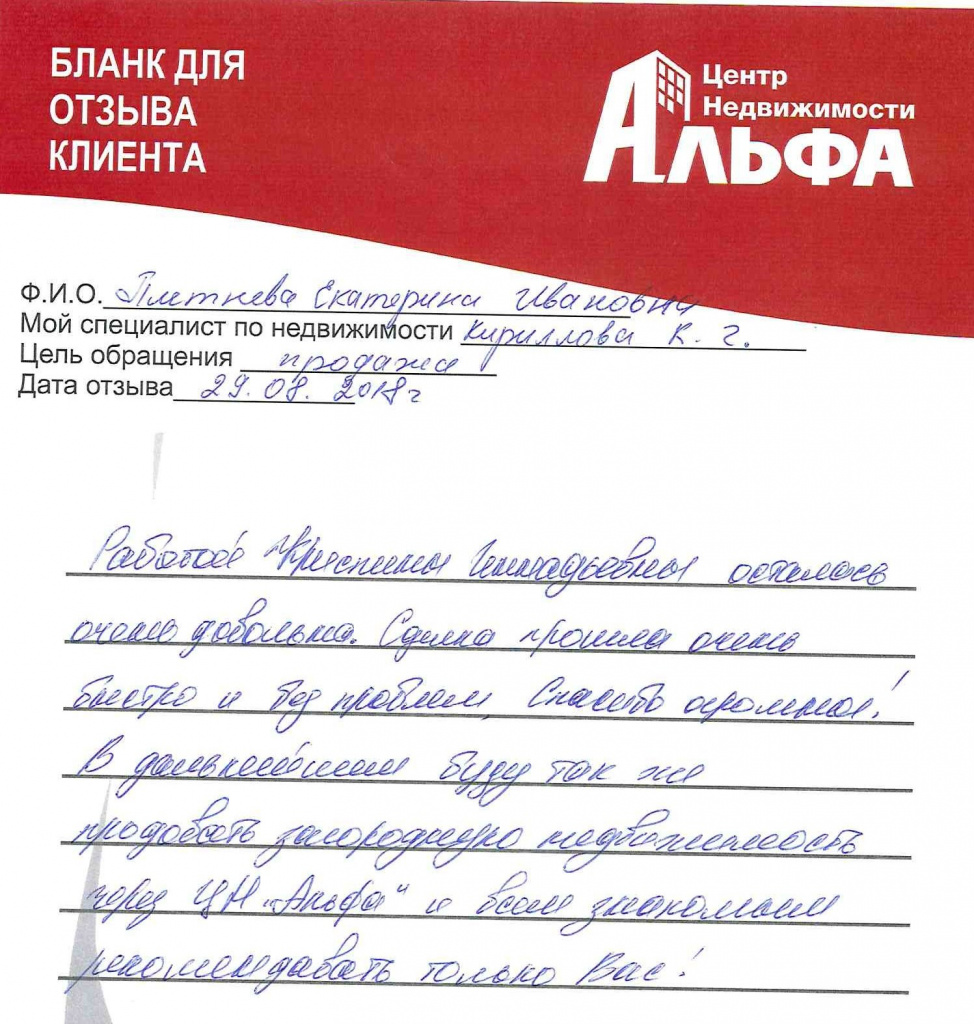 БЛАНК ДЛЯ
ОТЗЫВА
КЛИЕНТА
Центр
Недвижимости
АЛЬФА
Ф.И.О. Плетнева Екатерина Ивановна
Мой специалист по недвижимости Кириллова К. Г.
Цель обращения продажа
Дата отзыва 29.08.2018г
Работой Кристины Геннадьевны осталась
очень довольна. Сделка прошла очень
быстро и без проблем, Спасибо огромное!
В дальнейшем буду так же
продовать загородную недвижимость
через ЦН "Альфа" и всем знакомым
рекомендавать только Вас!